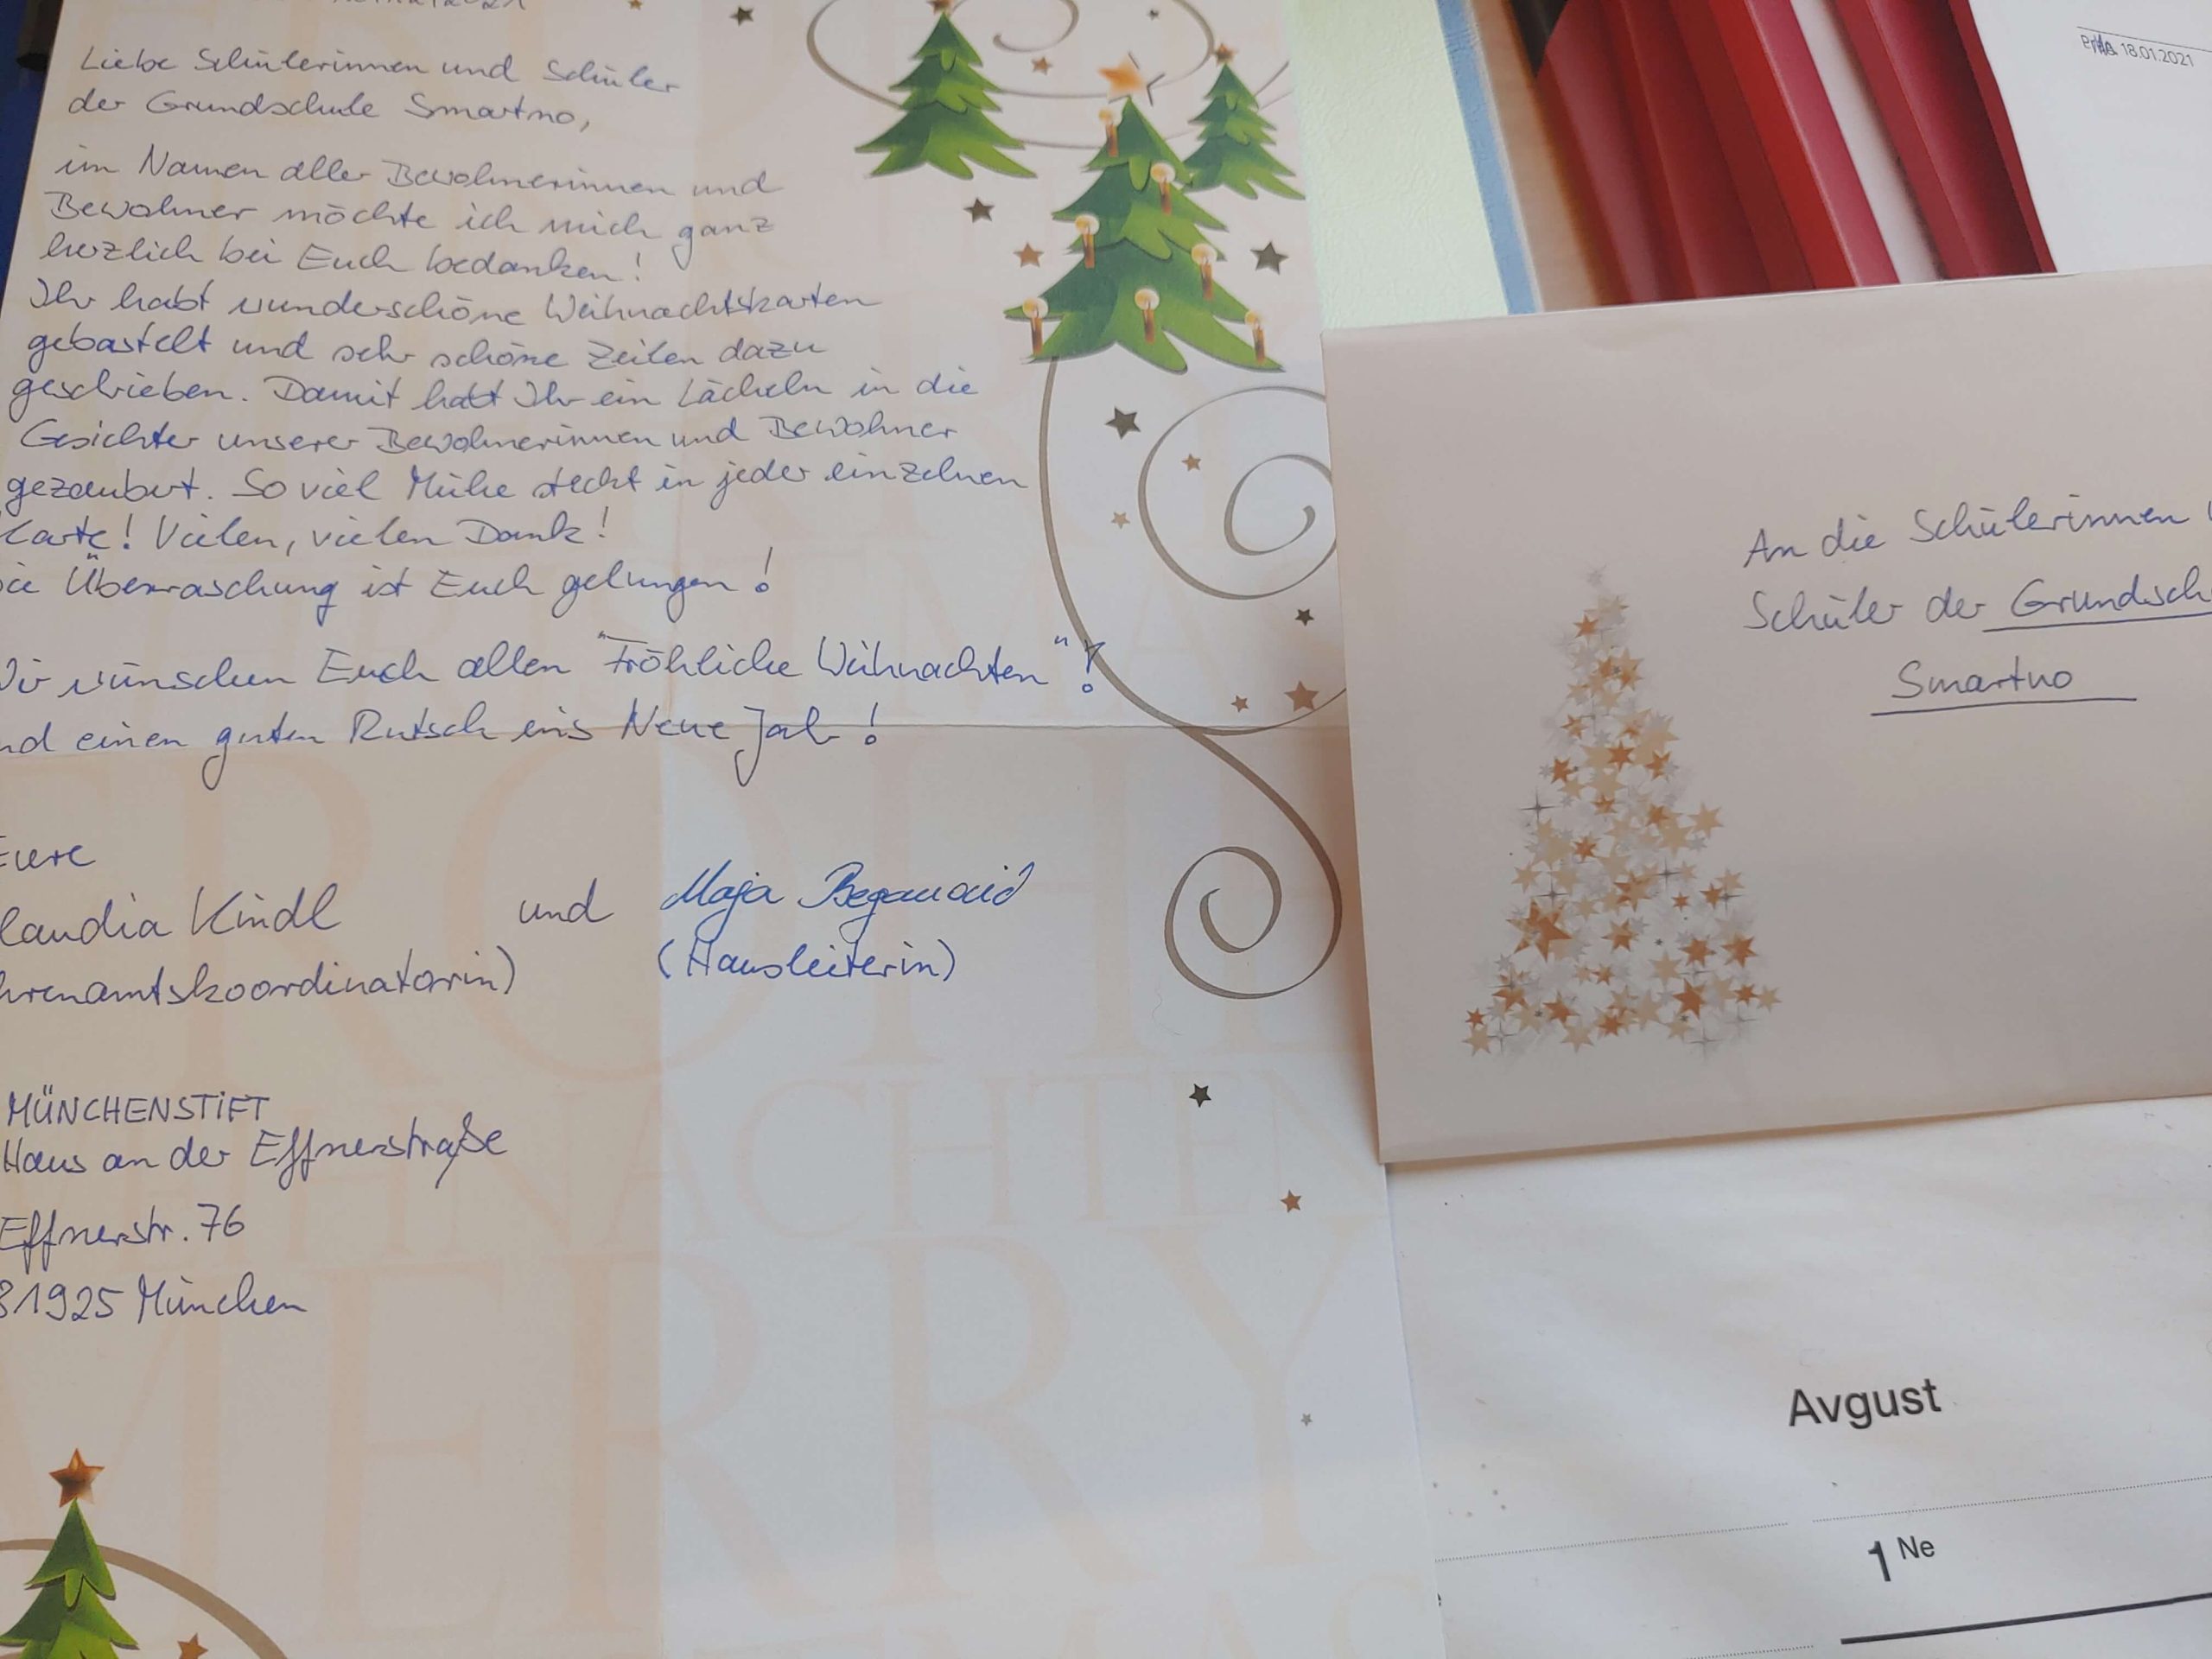 Liebe Schülerinnen und Schüler
der Grundschule Smartno,
im Namen aller Bewohnerinnen und
Bewohner möchte ich mich ganz
herzlich bei Euch bedanken!
Ihr habt wunderschöne Weihnachtskarten
gebastelt und sehr schöne Zeilen dazu
geschrieben. Damit habt Ihr ein Lächeln in die
Gesichter unserer Bewohnerinnen und Bewohner
gezaubert. So viel Mühe steckt in jeder einzelnen
Karte! Vielen, vielen Dank!
ie Überraschung ist Euch gelungen!
Wir wünschen Euch allen "Fröhliche Weihnachten"!
nd einen guten Rutsch ins Neue Jahr!
Eure
laudia Kindl und Maja
hrenamtskoordinatorin) (Hausleiterin)
MÜNCHENSTIFT
Haus an der Effnerstraße
Effnerstr. 76
81925 München
An die Schülerinnen
Schüler der Grundsch
Smartno
18.01.2021
Avgust
1 Ne
FROHE
WEIHNACHTEN
MERRY